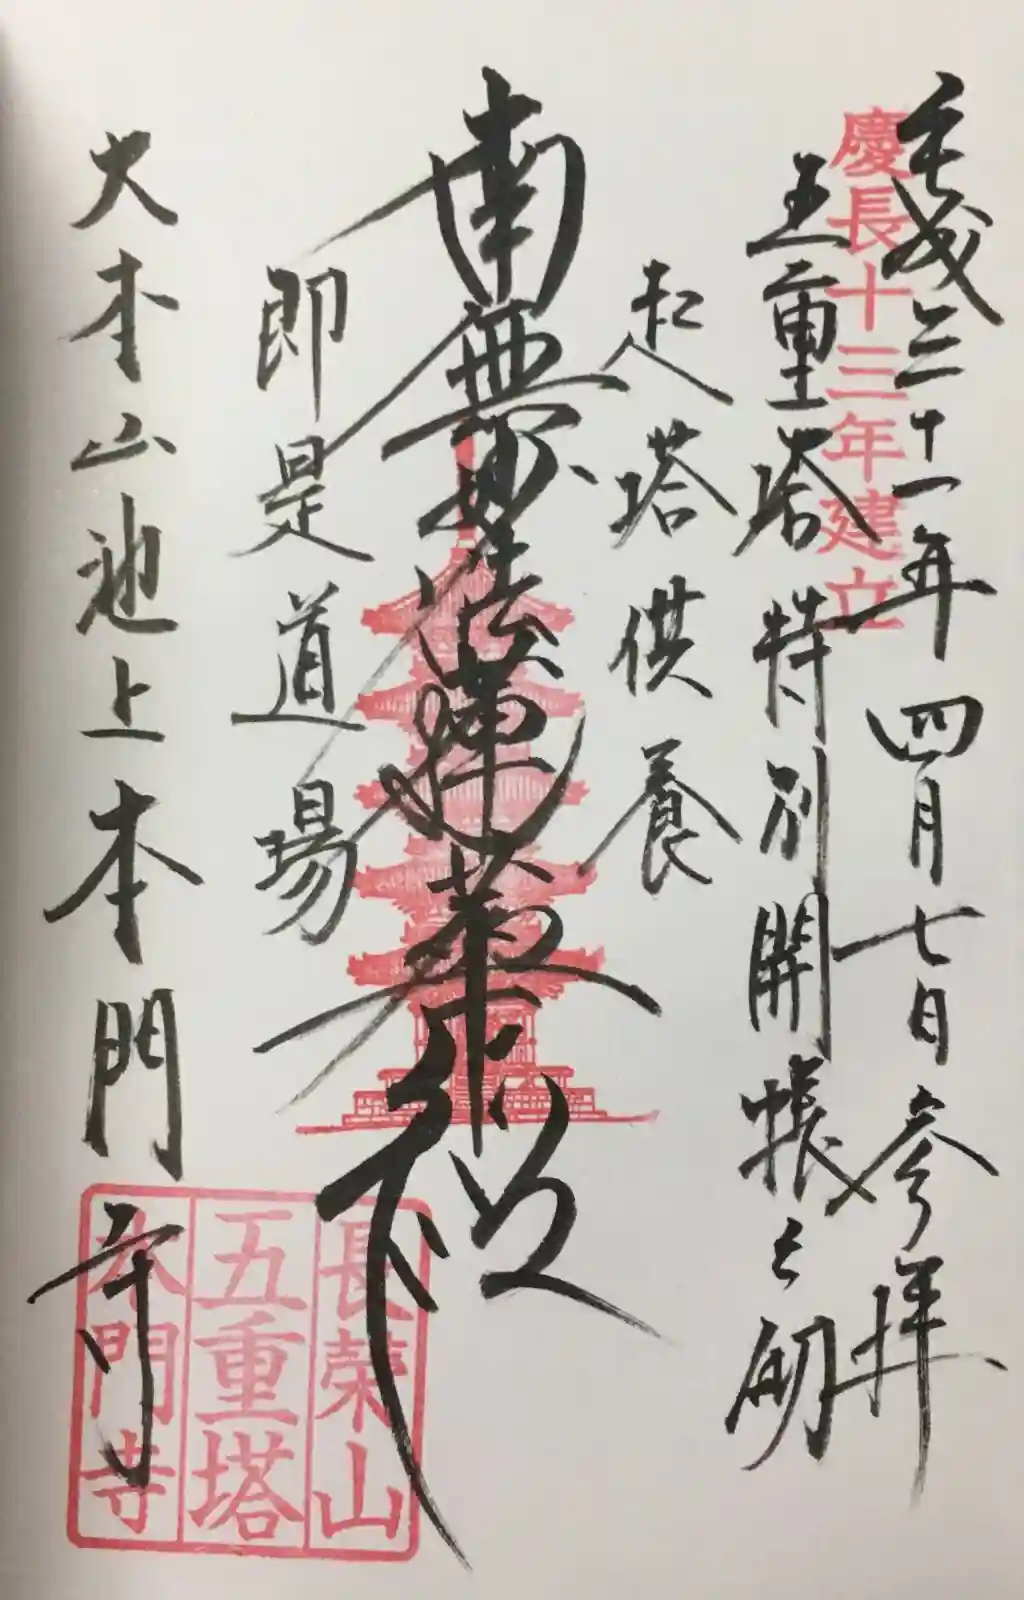 平成三十一年四月七日参拝
慶長十三年建立
五重塔特別開帳之砌
起塔供養
南無妙法蓮華経
即是道場
大本山池上本門寺
長榮山
五重塔
本門寺